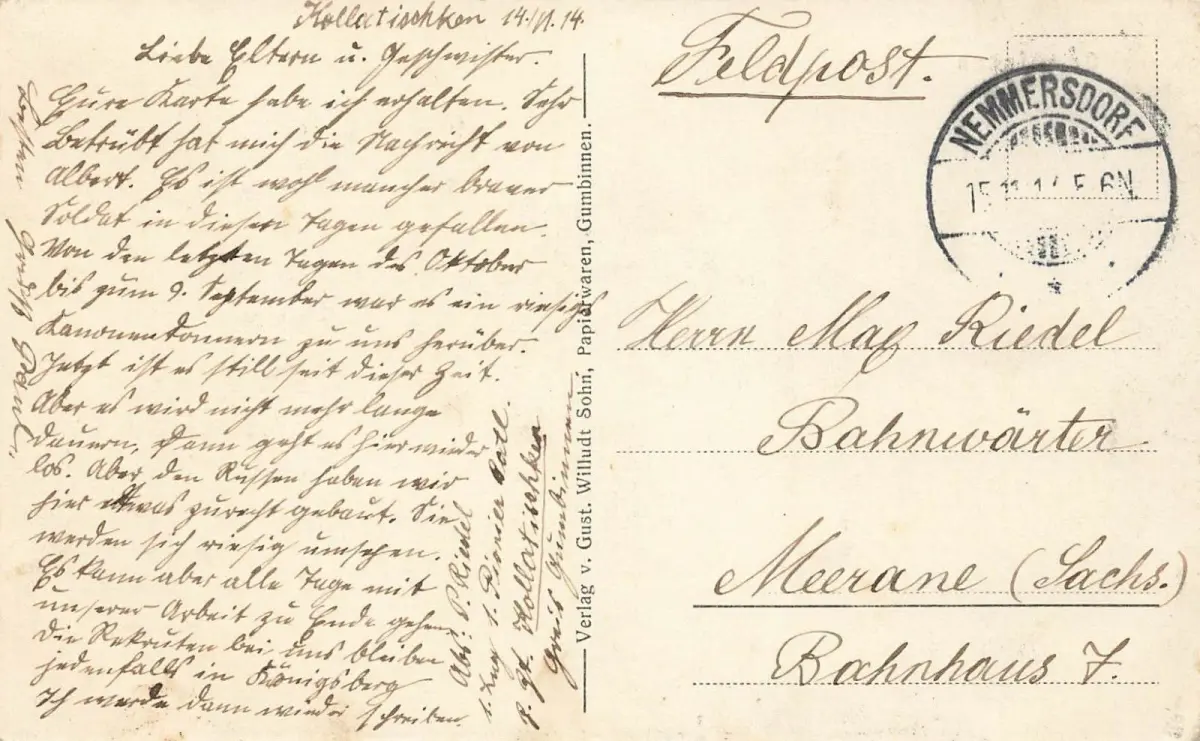 Kollatischken 14./11.14.
Liebe Eltern u. Geschwister.
Eure Karte habe ich erhalten. Sehr
betrübt hat mich die Nachricht von
Albert. Es ist wohl mancher braver
Soldat in diesen Tagen gefallen.
Von den letzten Tagen des Oktober
bis zum 9. September war es ein riesiges
Kanonendonnern zu uns herüber.
Jetzt ist es still seit dieser Zeit.
Aber es wird nicht mehr lange
dauern. Dann geht es hier wieder
los. Aber den Russen haben wir
hier etwas zurecht gebaut. Sie
werden sich riesig umsehen.
Es kann aber alle Tage mit
unserer Arbeit zu Ende gehen.
Die Rekruten bei uns bleiben
jedenfalls in Königsberg
Ich werde dann wieder schreiben.
Besten Gruß Paul.
Abs: P. Riedel
1. Zug 1. Pionier Batl.
z. Zt. Kollatischken
Kreis Gumbinnen
Verlag v. Gust. Willudt Sohn, Papierwaren, Gumbinnen.
Feldpost.
NEMMERSDORF
15.11.14.5-6N.
Herrn Max Riedel
Bahnwärter
Meerane (Sachs.)
Bahnhaus 7.